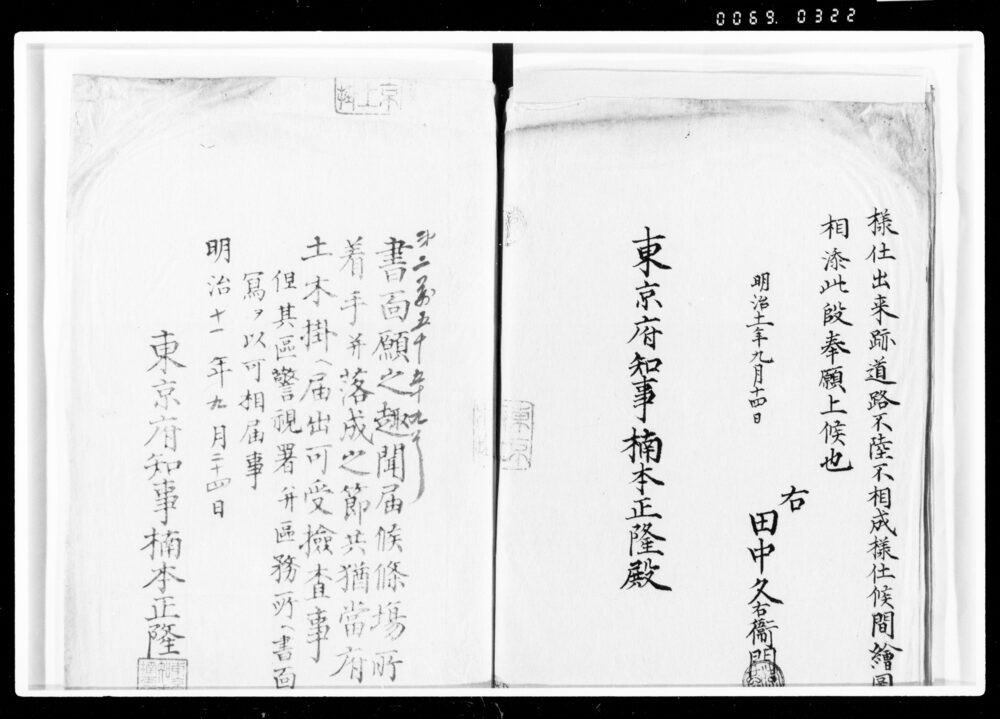 0069. 0322
様仕出来跡道路不陸不相成様仕候間繪圖
相添此段奉願上候也
明治十一年九月十四日
右
田中久右衞門
東京府知事楠本正隆殿
書面願之趣聞届候條場所
着手并落成之節共猶當府
土木掛へ届出可受撿査事
但其區警視署并區務所へ書面
寫ヲ以可相届事
明治十一年九月二十四日
東京府知事楠本正隆